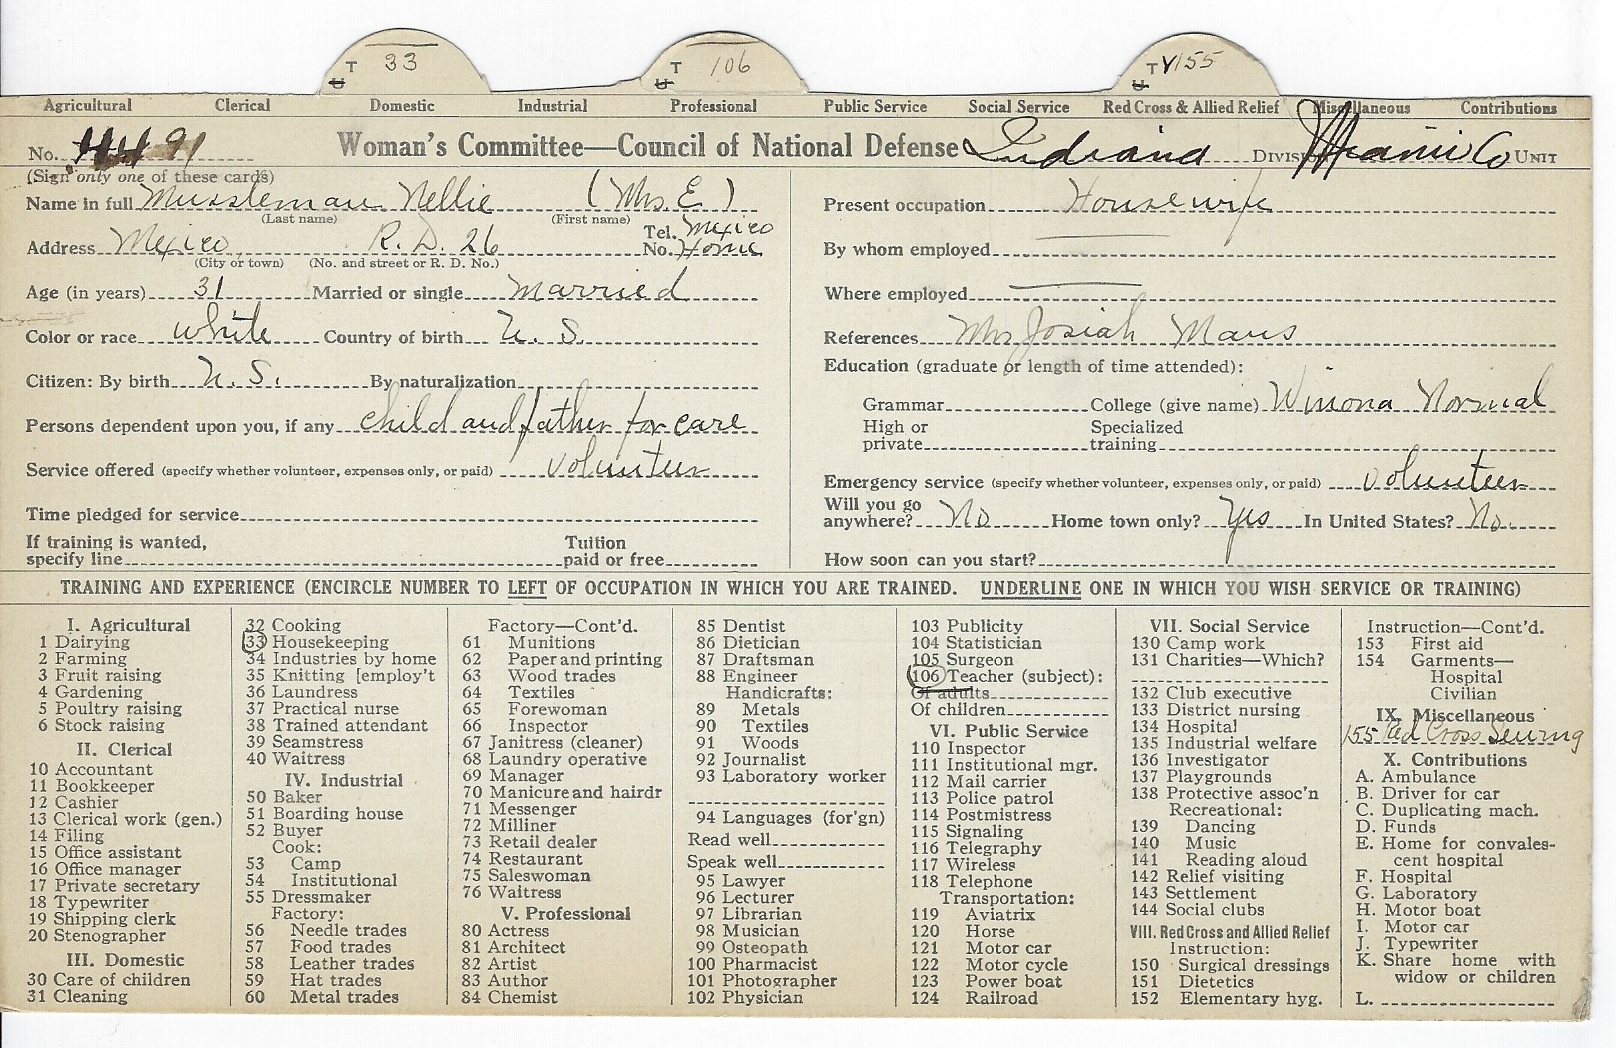 T 33 T 106 T V155
U U U
Agricultural Clerical Domestic Industrial Professional Public Service Social Service Red Cross & Allied Relief Miscellaneous Contributions
No. 91 Woman's Committee—Council of National Defense Indiana Division Miami Co Unit
(Sign only one of these cards)
Name in full Mussleman Nellie (Mrs. E)
(Last name) (First name)
Address Mexico R. D. 26 Tel. No. Mexico Home
(City or town) (No. and street or R. D. No.)
Age (in years) 31 Married or single Married
Color or race White Country of birth U. S.
Citizen: By birth U. S. By naturalization
Persons dependent upon you, if any child and father for care
Service offered (specify whether volunteer, expenses only, or paid) volunteer
Time pledged for service
If training is wanted, Tuition
specify line paid or free
Present occupation Housewife
By whom employed
Where employed
References Mrs Josiah Maus
Education (graduate or length of time attended):
Grammar College (give name) Winona Normal
High or Specialized
private training
Emergency service (specify whether volunteer, expenses only, or paid) volunteer
Will you go
anywhere? No Home town only? Yes In United States? No.
How soon can you start?
TRAINING AND EXPERIENCE (ENCIRCLE NUMBER TO LEFT OF OCCUPATION IN WHICH YOU ARE TRAINED. UNDERLINE ONE IN WHICH YOU WISH SERVICE OR TRAINING)
I. Agricultural
1 Dairying
2 Farming
3 Fruit raising
4 Gardening
5 Poultry raising
6 Stock raising
II. Clerical
10 Accountant
11 Bookkeeper
12 Cashier
13 Clerical work (gen.)
14 Filing
15 Office assistant
16 Office manager
17 Private secretary
18 Typewriter
19 Shipping clerk
20 Stenographer
III. Domestic
30 Care of children
31 Cleaning
32 Cooking
33 Housekeeping
34 Industries by home
35 Knitting [employ't
36 Laundress
37 Practical nurse
38 Trained attendant
39 Seamstress
40 Waitress
IV. Industrial
50 Baker
51 Boarding house
52 Buyer
Cook:
53 Camp
54 Institutional
55 Dressmaker
Factory:
56 Needle trades
57 Food trades
58 Leather trades
59 Hat trades
60 Metal trades
Factory—Cont'd.
61 Munitions
62 Paper and printing
63 Wood trades
64 Textiles
65 Forewoman
66 Inspector
67 Janitress (cleaner)
68 Laundry operative
69 Manager
70 Manicure and hairdr
71 Messenger
72 Milliner
73 Retail dealer
74 Restaurant
75 Saleswoman
76 Waitress
V. Professional
80 Actress
81 Architect
82 Artist
83 Author
84 Chemist
85 Dentist
86 Dietician
87 Draftsman
88 Engineer
Handicrafts:
89 Metals
90 Textiles
91 Woods
92 Journalist
93 Laboratory worker
94 Languages (for'gn)
Read well
Speak well
95 Lawyer
96 Lecturer
97 Librarian
98 Musician
99 Osteopath
100 Pharmacist
101 Photographer
102 Physician
103 Publicity
104 Statistician
105 Surgeon
106 Teacher (subject):
Of adults
Of children
VI. Public Service
110 Inspector
111 Institutional mgr.
112 Mail carrier
113 Police patrol
114 Postmistress
115 Signaling
116 Telegraphy
117 Wireless
118 Telephone
Transportation:
119 Aviatrix
120 Horse
121 Motor car
122 Motor cycle
123 Power boat
124 Railroad
VII. Social Service
130 Camp work
131 Charities—Which?
132 Club executive
133 District nursing
134 Hospital
135 Industrial welfare
136 Investigator
137 Playgrounds
138 Protective assoc'n
Recreational:
139 Dancing
140 Music
141 Reading aloud
142 Relief visiting
143 Settlement
144 Social clubs
VIII. Red Cross and Allied Relief
Instruction:
150 Surgical dressings
151 Dietetics
152 Elementary hyg.
Instruction—Cont'd.
153 First aid
154 Garments—
Hospital
Civilian
IX. Miscellaneous
155 Red Cross Sewing
X. Contributions
A. Ambulance
B. Driver for car
C. Duplicating mach.
D. Funds
E. Home for convales-
cent hospital
F. Hospital
G. Laboratory
H. Motor boat
I. Motor car
J. Typewriter
K. Share home with
widow or children
L.